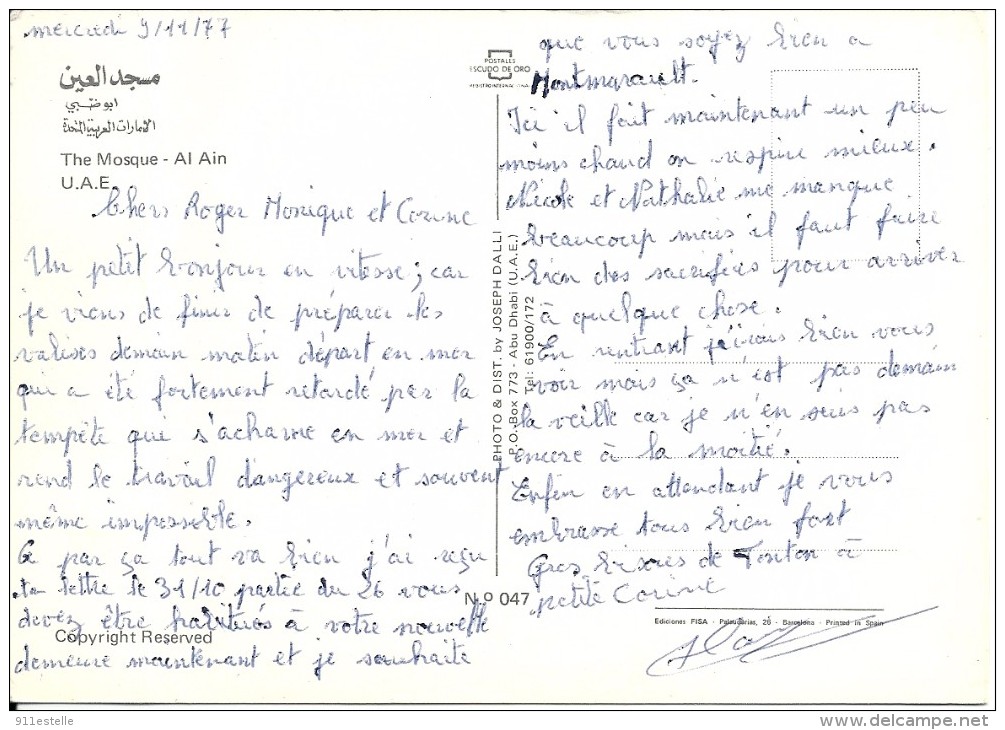 mercredi 9/11/77
مسجد العين
ابوظبي
الامارات العربية المتحدة
The Mosque - Al Ain
U.A.E.
Chers Roger Monique et Corinne
Un petit bonjour en vitesse ; car
je viens de finir de préparer les
valises demain matin départ en mer
qui a été fortement retardé par la
tempête que s'acharne en mer et
rend le travail dangereux et souvent
même impossible.
A par ça tout va bien j'ai reçu
ta lettre le 31/10 partie du 26 vous
devez être habitués à votre nouvelle
demeure maintenant et je souhaite
Copyright Reserved
POSTALES
ESCUDO DE ORO
REGISTRO INTERNACIONAL
PHOTO & DIST. by JOSEPH DALLI
P.O. Box 773 - Abu Dhabi (U.A.E.)
Tel: 61900/172
Nº 047
que vous soyez bien a
Montmarault.
Ici il fait maintenant un peu
moins chaud on respire mieux.
Nicole et Nathalie me manque
beaucoup mais il faut faire
bien des sacrifies pour arriver
à quelque chose.
En rentrant j'irais bien vous
voir mais ça n'est pas demain
la veille car je n'en suis pas
encore à la moitié.
Enfin en attendant je vous
embrasse tous bien fort
Gros bisous de Tonton à
petite Corine
Ediciones FISA - Palaudarias, 26 - Barcelona - Printed in Spain
911estelle
www.delcampe.net